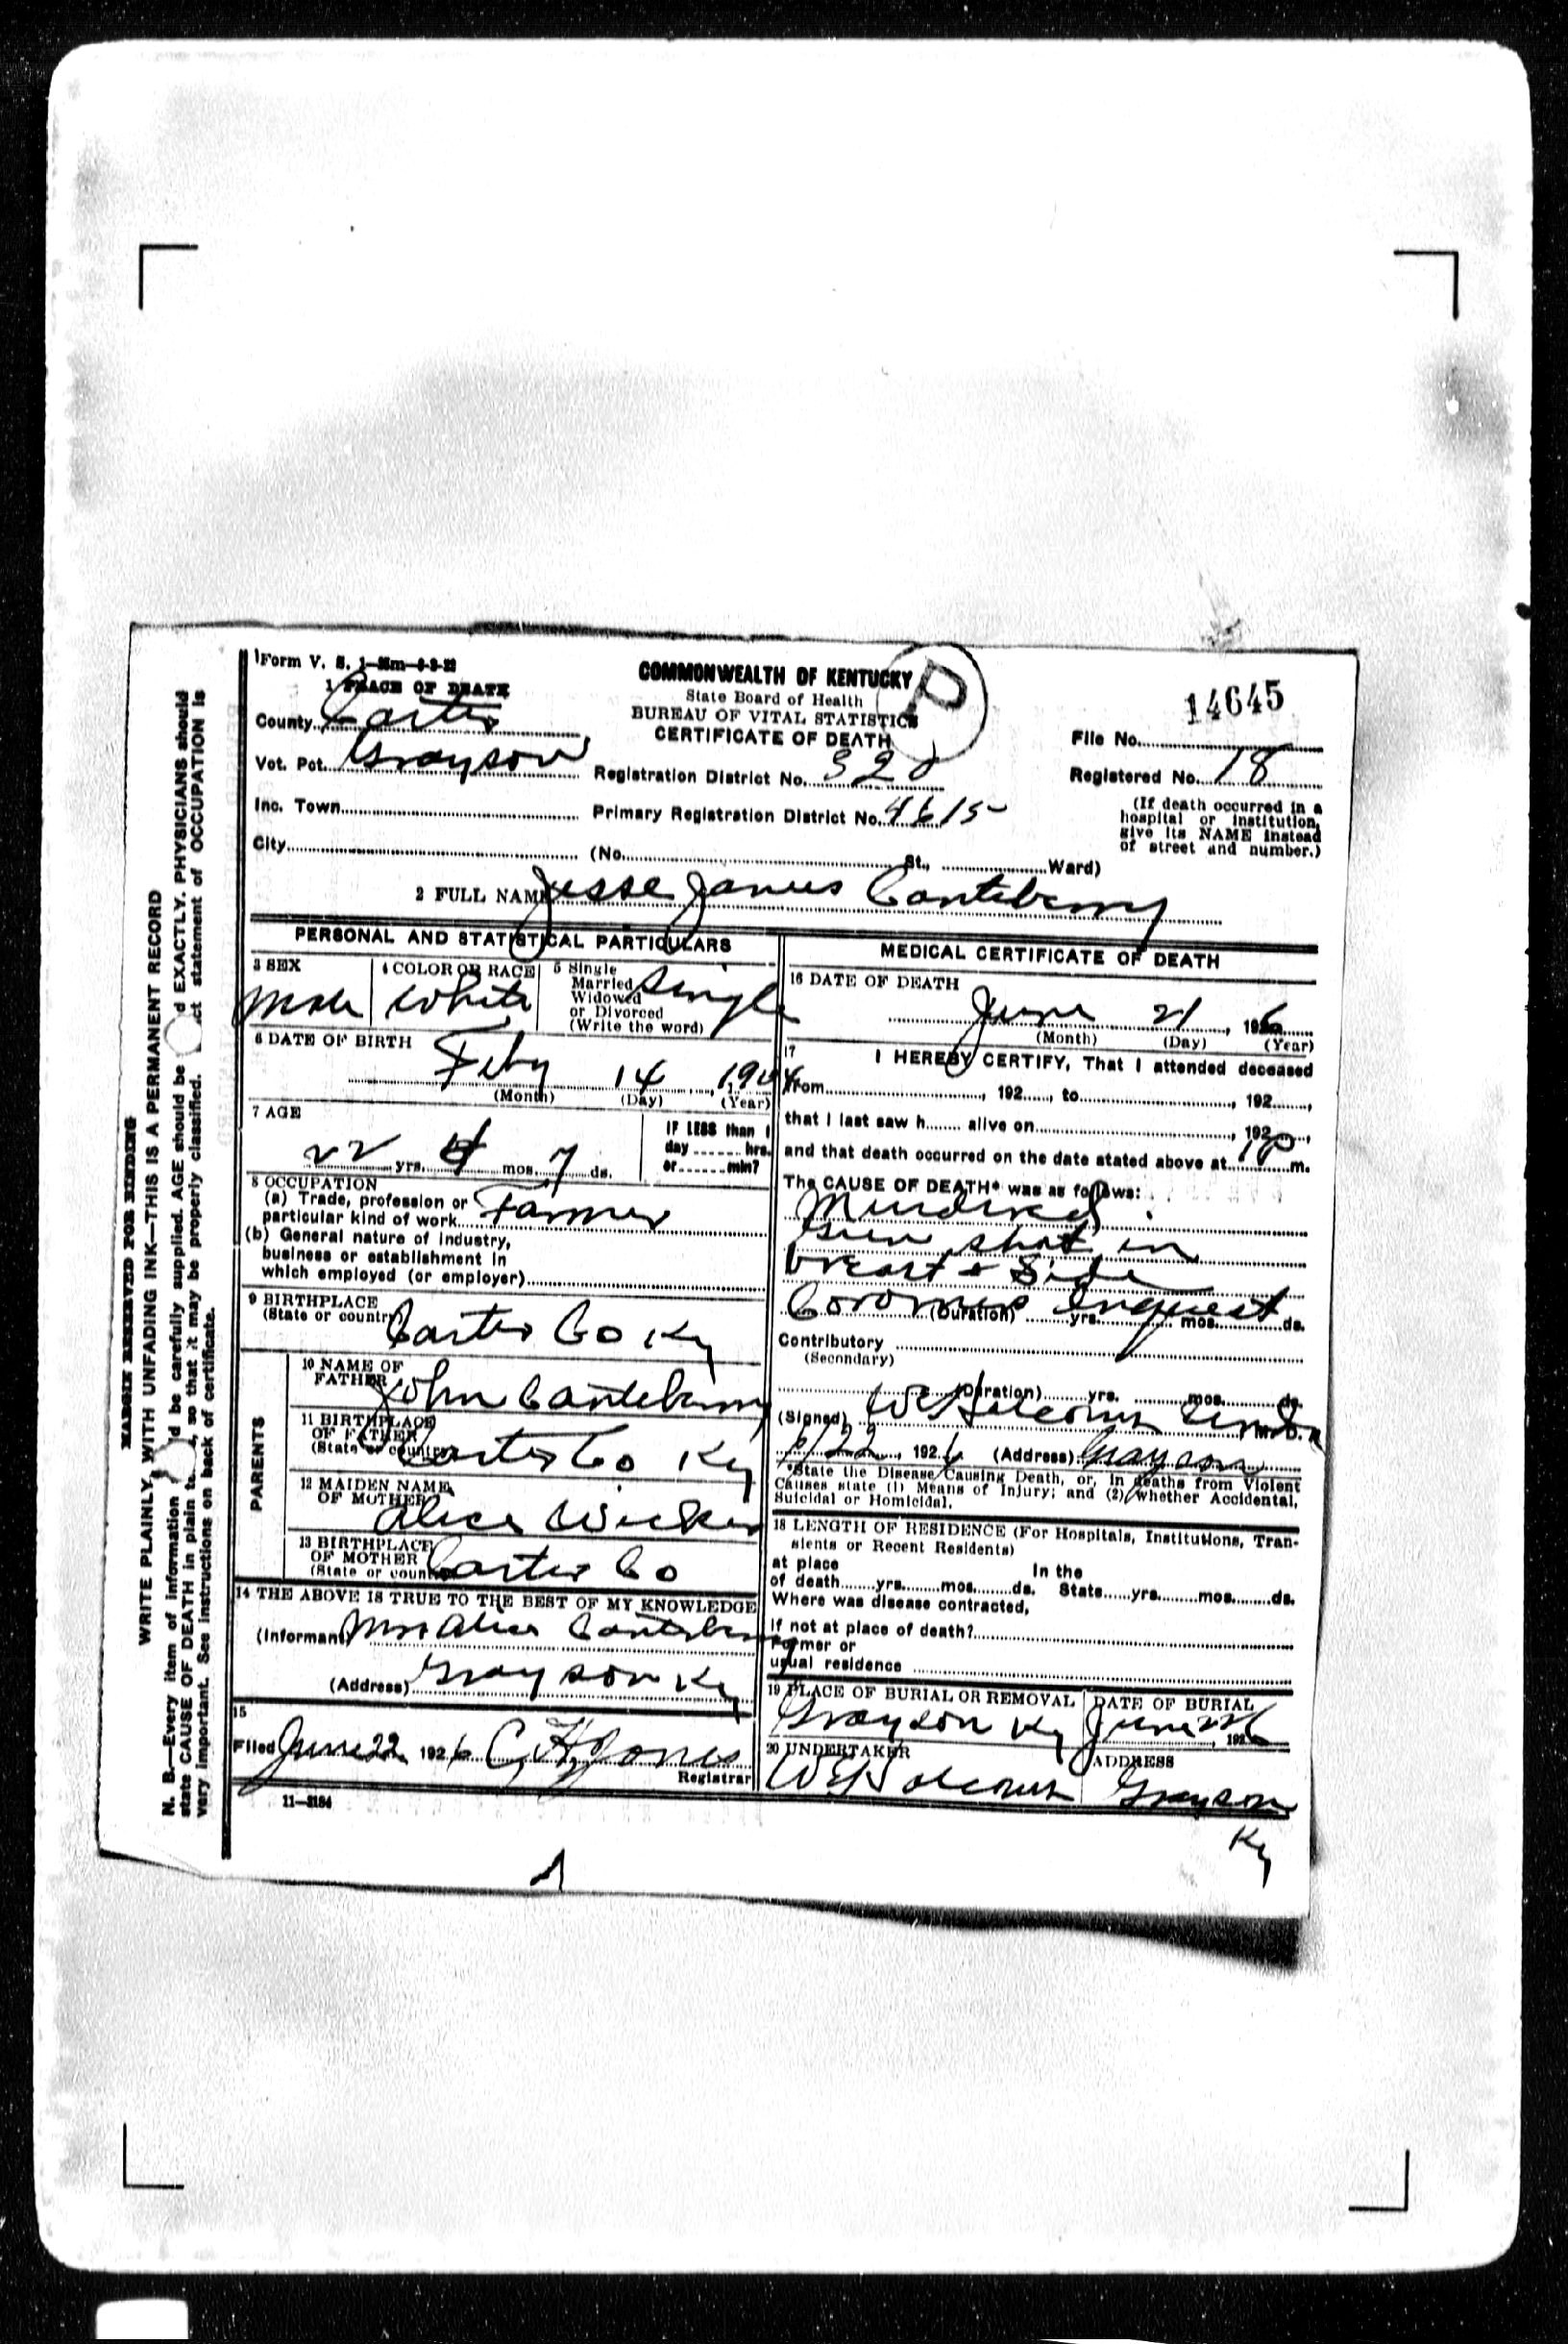 Form V. S. 1—
1 PLACE OF DEATH
COMMONWEALTH OF KENTUCKY
State Board of Health
BUREAU OF VITAL STATISTICS
CERTIFICATE OF DEATH
P
14645
County Carter
File No.
Vot. Pct. Grayson
Registration District No. 320
Registered No. 18
Inc. Town
Primary Registration District No. 4615
(If death occurred in a
hospital or institution,
give its NAME instead
of street and number.)
City (No. St., Ward)
2 FULL NAME Jesse James Canteberry
PERSONAL AND STATISTICAL PARTICULARS
3 SEX
Male
4 COLOR OR RACE
White
5 Single
Married
Widowed
or Divorced
(Write the word)
Single
6 DATE OF BIRTH
Feby 14, 1904
(Month) (Day) (Year)
7 AGE
22 yrs. 4 mos. 7 ds.
IF LESS than 1
day hrs.
or min?
8 OCCUPATION
(a) Trade, profession or
particular kind of work Farmer
(b) General nature of industry,
business or establishment in
which employed (or employer)
9 BIRTHPLACE
(State or country) Carter Co Ky
PARENTS
10 NAME OF
FATHER John Canteberry
11 BIRTHPLACE
OF FATHER
(State or country) Carter Co. Ky
12 MAIDEN NAME
OF MOTHER Alice
13 BIRTHPLACE
OF MOTHER
(State or country) Carter Co
14 THE ABOVE IS TRUE TO THE BEST OF MY KNOWLEDGE
(Informant) Mrs Alice Canteberry
(Address) Grayson Ky
15
Filed June 22 1926 C. H. Jones
Registrar
11—3184
MEDICAL CERTIFICATE OF DEATH
16 DATE OF DEATH
June 21, 1926
(Month) (Day) (Year)
17
I HEREBY CERTIFY, That I attended deceased
from , 192 , to , 192 ,
that I last saw h alive on , 192 ,
and that death occurred on the date stated above at 1 P m.
The CAUSE OF DEATH* was as follows:
Murdered
gun shot in
breast & Side
Coroners Inquest
(Duration) yrs. mos. ds.
Contributory
(Secondary)
(Duration) yrs. mos. ds.
(Signed) M. D.
6/22, 1926 (Address) Grayson
*State the Disease Causing Death, or, in deaths from Violent
Causes state (1) Means of Injury; and (2) whether Accidental,
Suicidal or Homicidal.
18 LENGTH OF RESIDENCE (For Hospitals, Institutions, Tran-
sients or Recent Residents)
at place In the
of death yrs. mos. ds. State yrs. mos. ds.
Where was disease contracted,
if not at place of death?
Former or
usual residence
19 PLACE OF BURIAL OR REMOVAL
Grayson Ky
DATE OF BURIAL
June 22, 1926
20 UNDERTAKER
ADDRESS
Grayson
Ky
MARGIN RESERVED FOR BINDING
WRITE PLAINLY, WITH UNFADING INK—THIS IS A PERMANENT RECORD
N. B.—Every item of information be carefully supplied. AGE should be EXACTLY. PHYSICIANS should
state CAUSE OF DEATH in plain so that it may be properly classified. statement of OCCUPATION is
very important. See instructions on back of certificate.